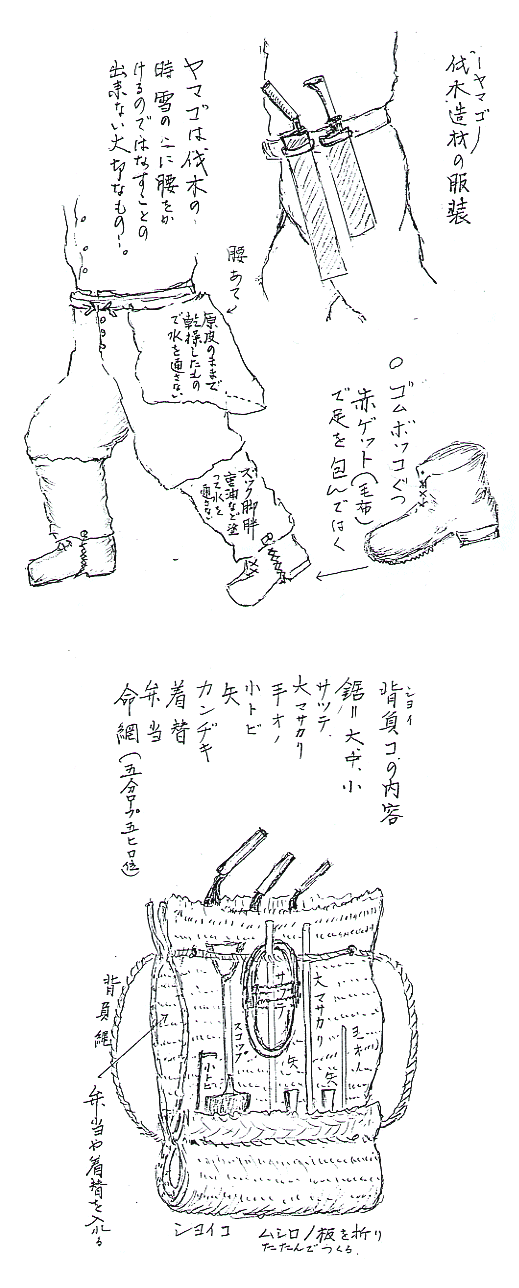 伐木造材の服装
(ヤマゴ)
ヤマゴは、伐木の
時 雪の上に腰をか
けるのではなすことの
出来ない大切なもの。
腰あて
原皮のままで
乾燥したもの
で水を通さない
○ ゴムボッコぐつ
赤ゲット(毛布)
で足を包んではく
ズック脚胖
重油など塗
って水を
通さない
背負コの内容
ショイ
鋸=大、中、小
サツテ.
大マサカリ
手オノ
小トビ
矢
カンヂキ
着替
弁当
命綱(五分ロープ五ヒロ位)
サツテ
大マサカリ
スコップ
小トビ
矢
矢
背負縄
弁当や着替を入れる
ショイコ
ムシロノ板を折り
たたんでつくる.